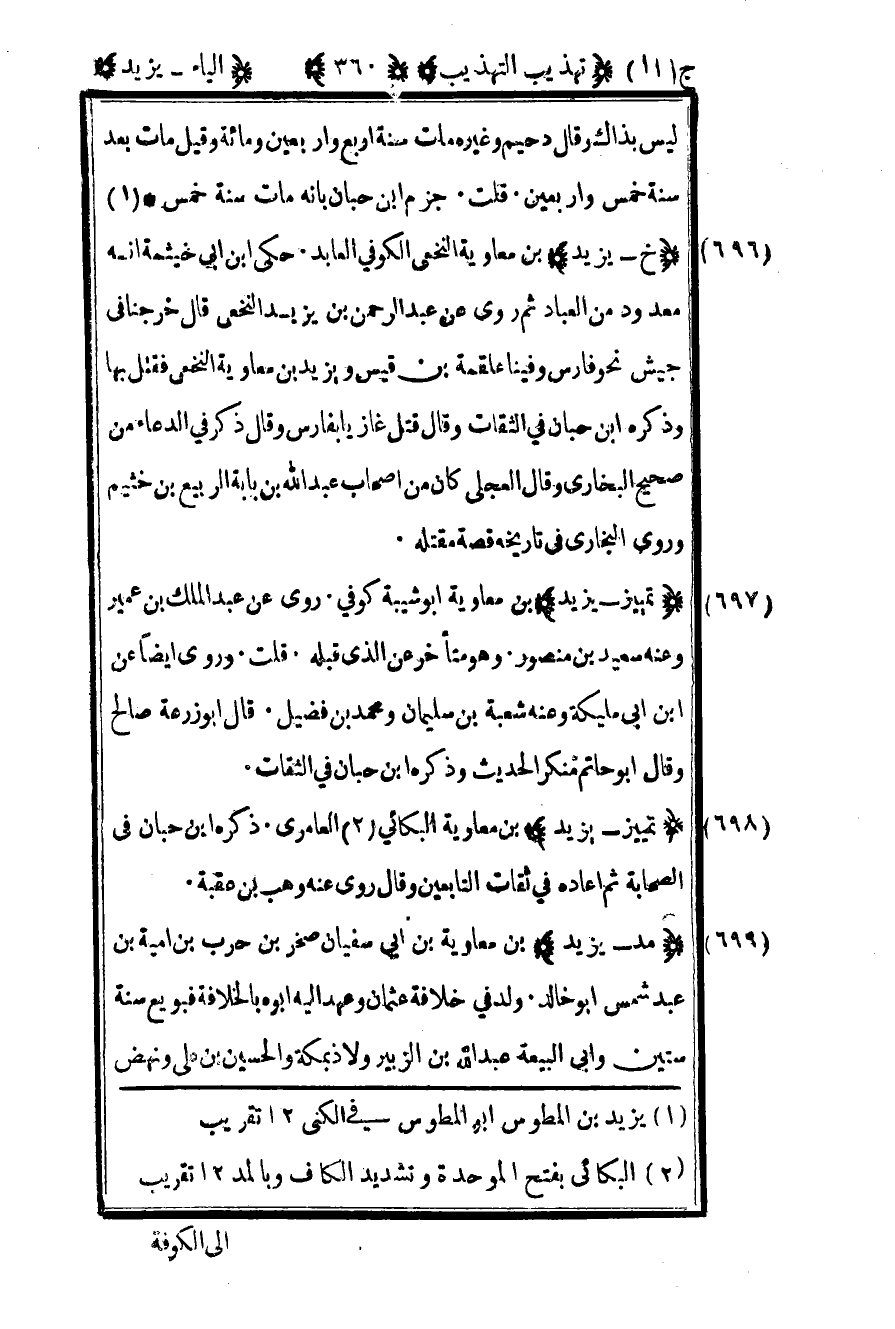 ج (١١) ﴿ تهذيب التهذيب ﴾ ﴿ ٣٦٠ ﴾ ﴿ الياء ـ يزيد ﴾
ليس بذاك وقال دحيم وغيره مات سنة اربع واربعين ومائة وقيل مات بعد
سنة خمس واربعين ٠ قلت ٠ جزم ابن حبان بانه مات سنة خمس * (١)
(٦٩٦) ﴿ خ ـ يزيد ﴾ بن معاوية النخعى الكوفي العابد ٠ حكى ابن ابي خيثمة انه
معدود من العباد ثم روى عن عبدالرحمن بن يزيد النخعى قال خرجنا في
جيش نحو فارس وفينا علقمة بن قيس ويزيد بن معاوية النخعى فقتل بها
وذكره ابن حبان في الثقات وقال قتل غازيا بفارس وقال ذكر في الدعاء من
صحيح البخارى وقال العجلى كان من اصحاب عبدالله بن بابة الربيع بن خثيم
وروى البخارى في تاريخه قصة مقتله ٠
(٦٩٧) ﴿ تمييز ـ يزيد ﴾ بن معاوية ابوشيبة كوفي ٠ روى عن عبدالملك بن عمير
وعنه سعيد بن منصور ٠ وهو متأخر عن الذى قبله ٠ قلت ٠ وروى ايضاً عن
ابن ابي مليكة وعنه شعبة بن سليمان ومحمد بن فضيل ٠ قال ابوزرعة صالح
وقال ابوحاتم منكر الحديث وذكره ابن حبان في الثقات ٠
(٦٩٨) ﴿ تمييز ـ يزيد ﴾ بن معاوية البكائي (٢) العامرى ٠ ذكره ابن حبان فى
الصحابة ثم اعاده في ثقات التابعين وقال روى عنه وهب بن عقبة ٠
(٦٩٩) ﴿ مد ـ يزيد ﴾ بن معاوية بن ابي سفيان صخر بن حرب بن امية بن
عبد شمس ابو خالد ٠ ولد في خلافة عثمان وعهد اليه ابوه بالخلافة فبويع سنة
ستين وابي البيعة عبدالله بن الزبير ولاذ بمكة والحسين بن على ونهض
(١) يزيد بن المطوس ابو المطوس سيفي الكنى ١٢ تقريب
(٢) البكائى بفتح الموحدة وتشديد الكاف وبالمد ١٢ تقريب
الى الكوفة